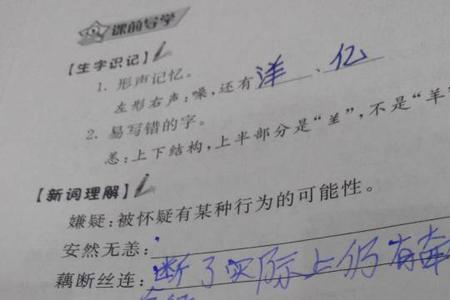 课前导学
【生字识记】
1. 形声记忆。
左形右声:嗓,还有洋、亿
2. 易写错的字。
恙:上下结构,上半部分是“⺷”,不是“羊”
【新词理解】
嫌疑:被怀疑有某种行为的可能性。
安然无恙:
藕断丝连:断了实际上仍有牵